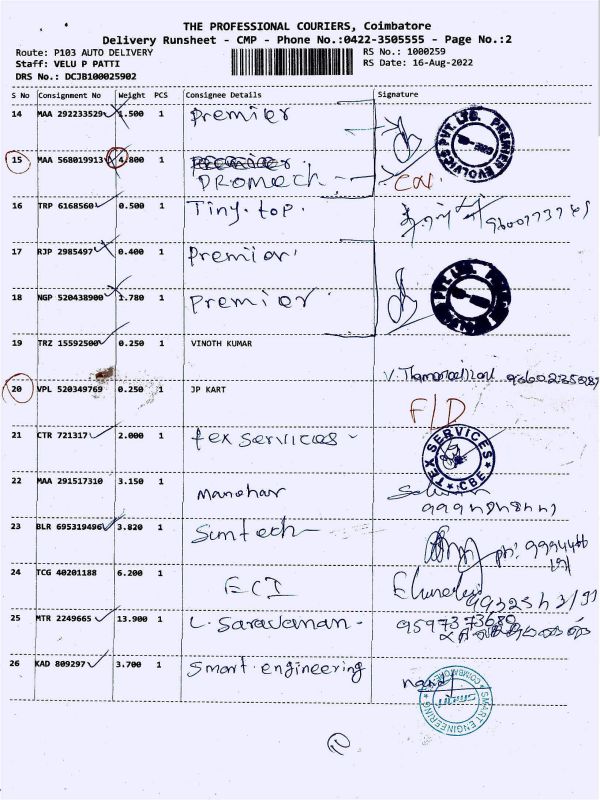 THE PROFESSIONAL COURIERS, Coimbatore
Delivery Runsheet - CMP - Phone No.:0422-3505555 - Page No.:2
Route: P103 AUTO DELIVERY
RS No.: 1000259
Staff: VELU P PATTI
RS Date: 16-Aug-2022
DRS No.: DCJB100025902
S No Consignment No Weight PCS Consignee Details Signature
14 MAA 292233529 1.500 1 Premier
PREMIER EVOLVICS PVT. LTD.
15 MAA 568019913 4.800 1
Dromech
16 TRP 6168560 0.500 1 Tiny. top.
17 RJP 2985497 0.400 1 Premier
18 NGP 520438900 1.780 1 Premier
19 TRZ 15592500 0.250 1 VINOTH KUMAR
20 VPL 520349769 0.250 1 JP KART
F/D
21 CTR 721317 2.000 1 tex services -
TEX SERVICES CBE
22 MAA 291517310 3.150 1 Manohar
23 BLR 695319496 3.820 1 Simtech
24 TCG 40201188 6.200 1 ECI
25 MTR 2249665 13.900 1 L. Saravanan - 9597373680
26 KAD 809297 3.700 1 Smart. engineering
SMART ENGINEERING COIMBATORE